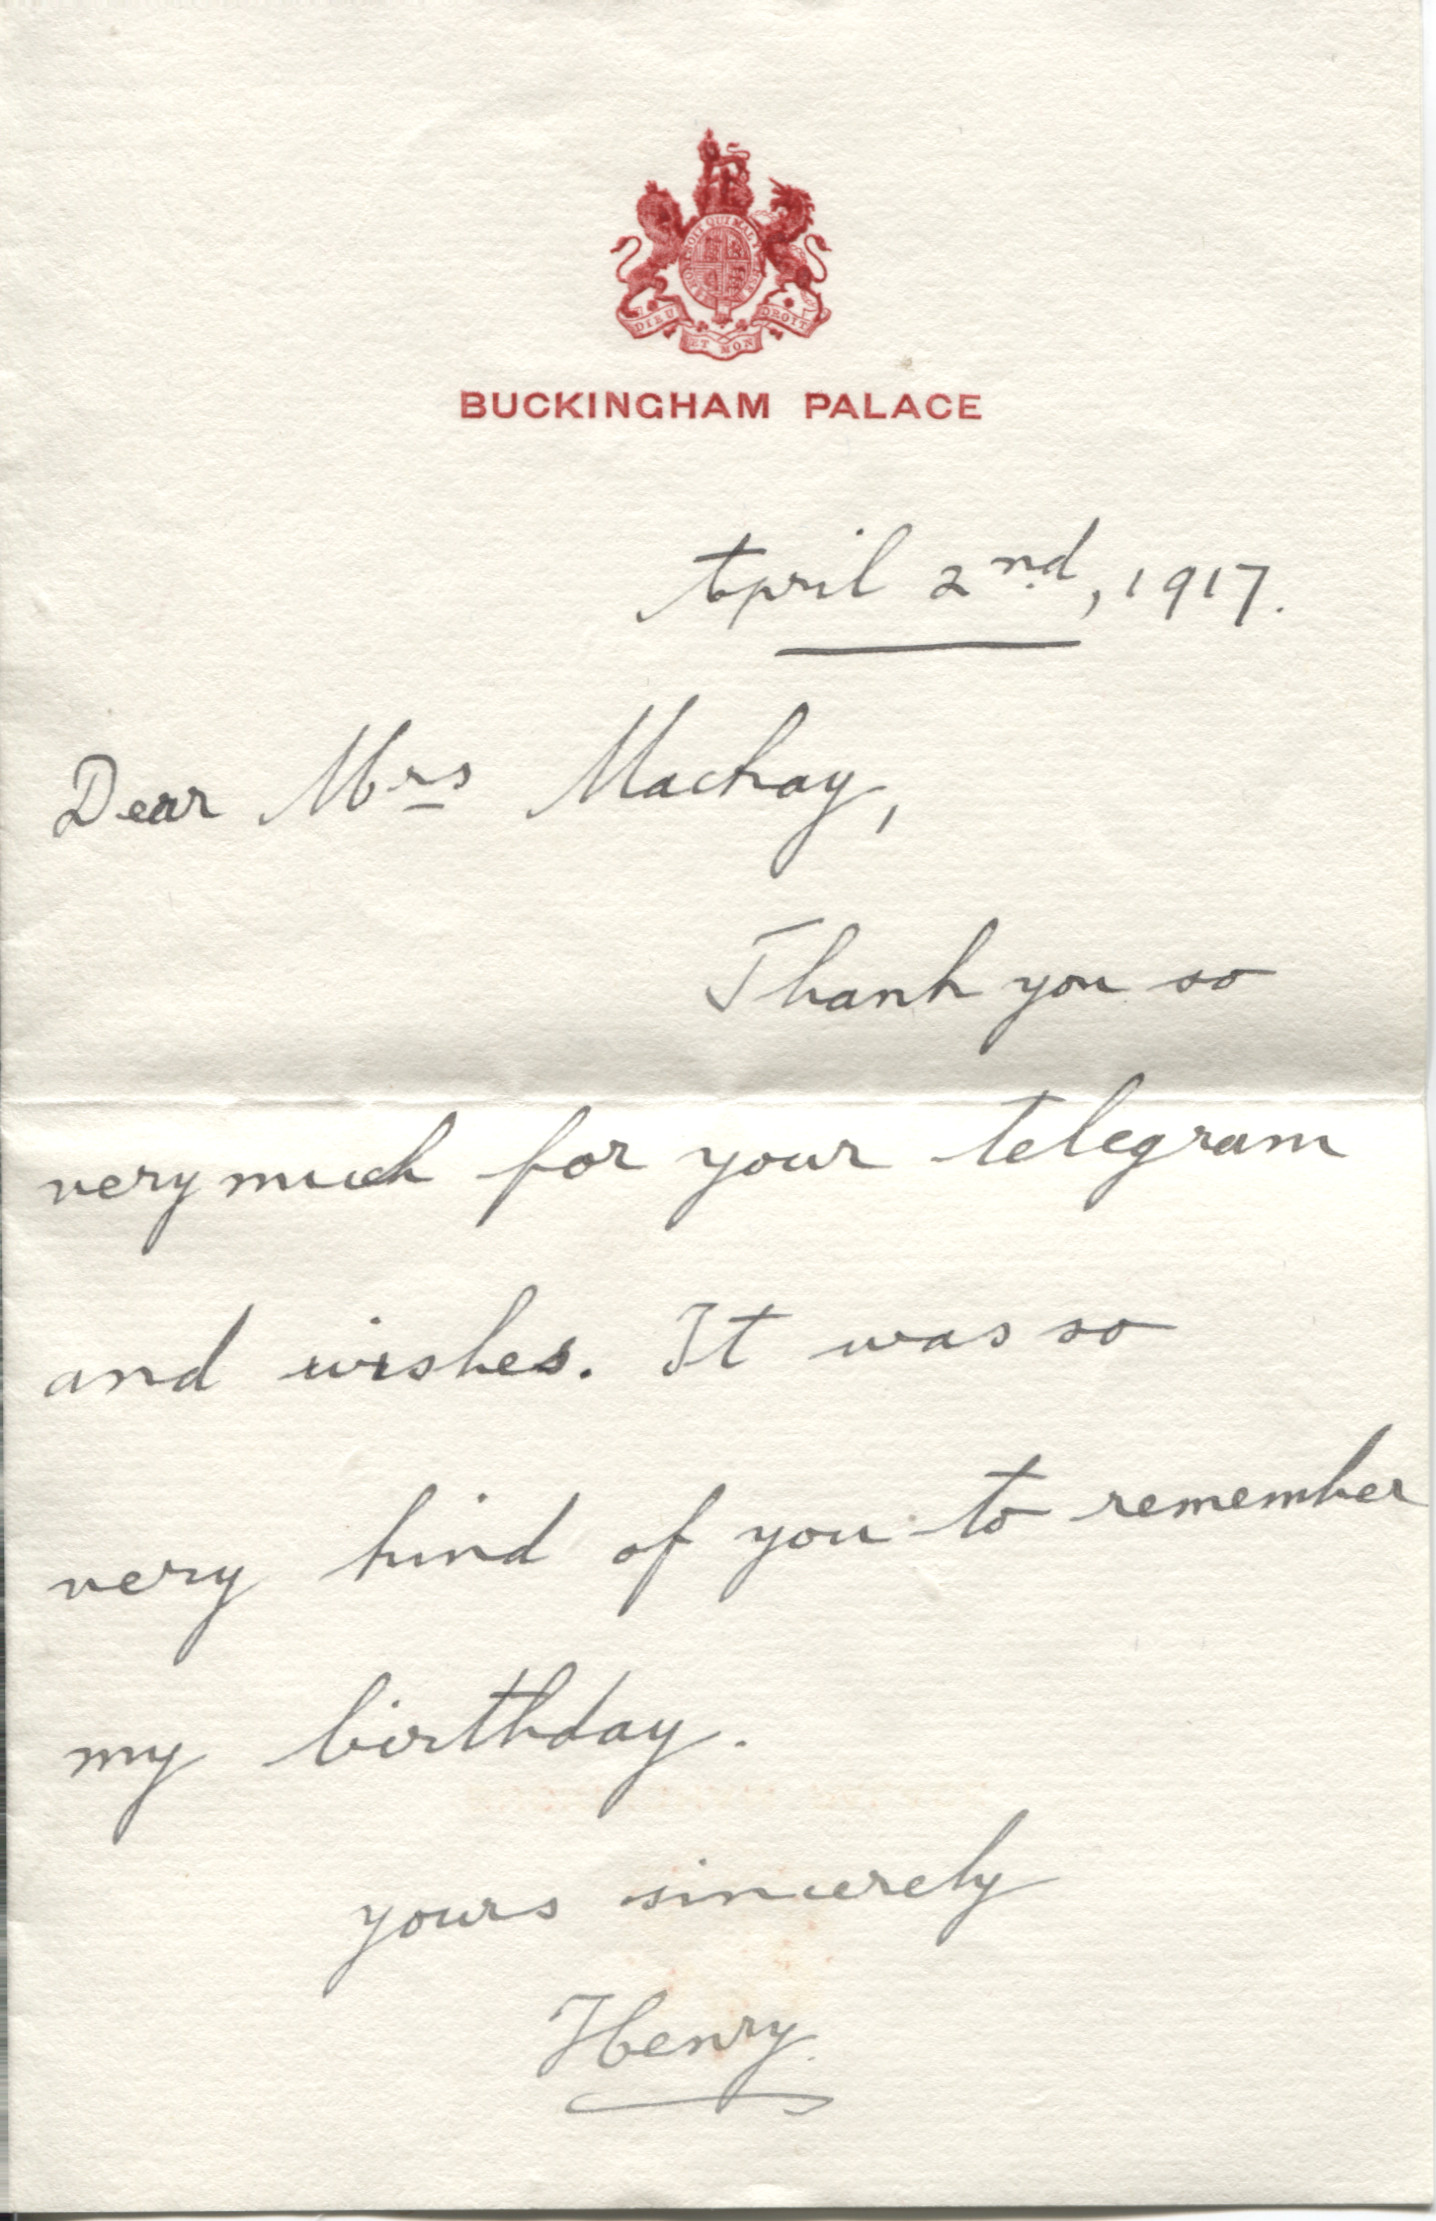 HONI SOIT QUI MAL Y PENSE
DIEU ET MON DROIT
BUCKINGHAM PALACE
April 2nd, 1917.
Dear Mrs Mackay,
Thank you so
very much for your telegram
and wishes. It was so
very kind of you to remember
my birthday.
yours sincerely
Henry.